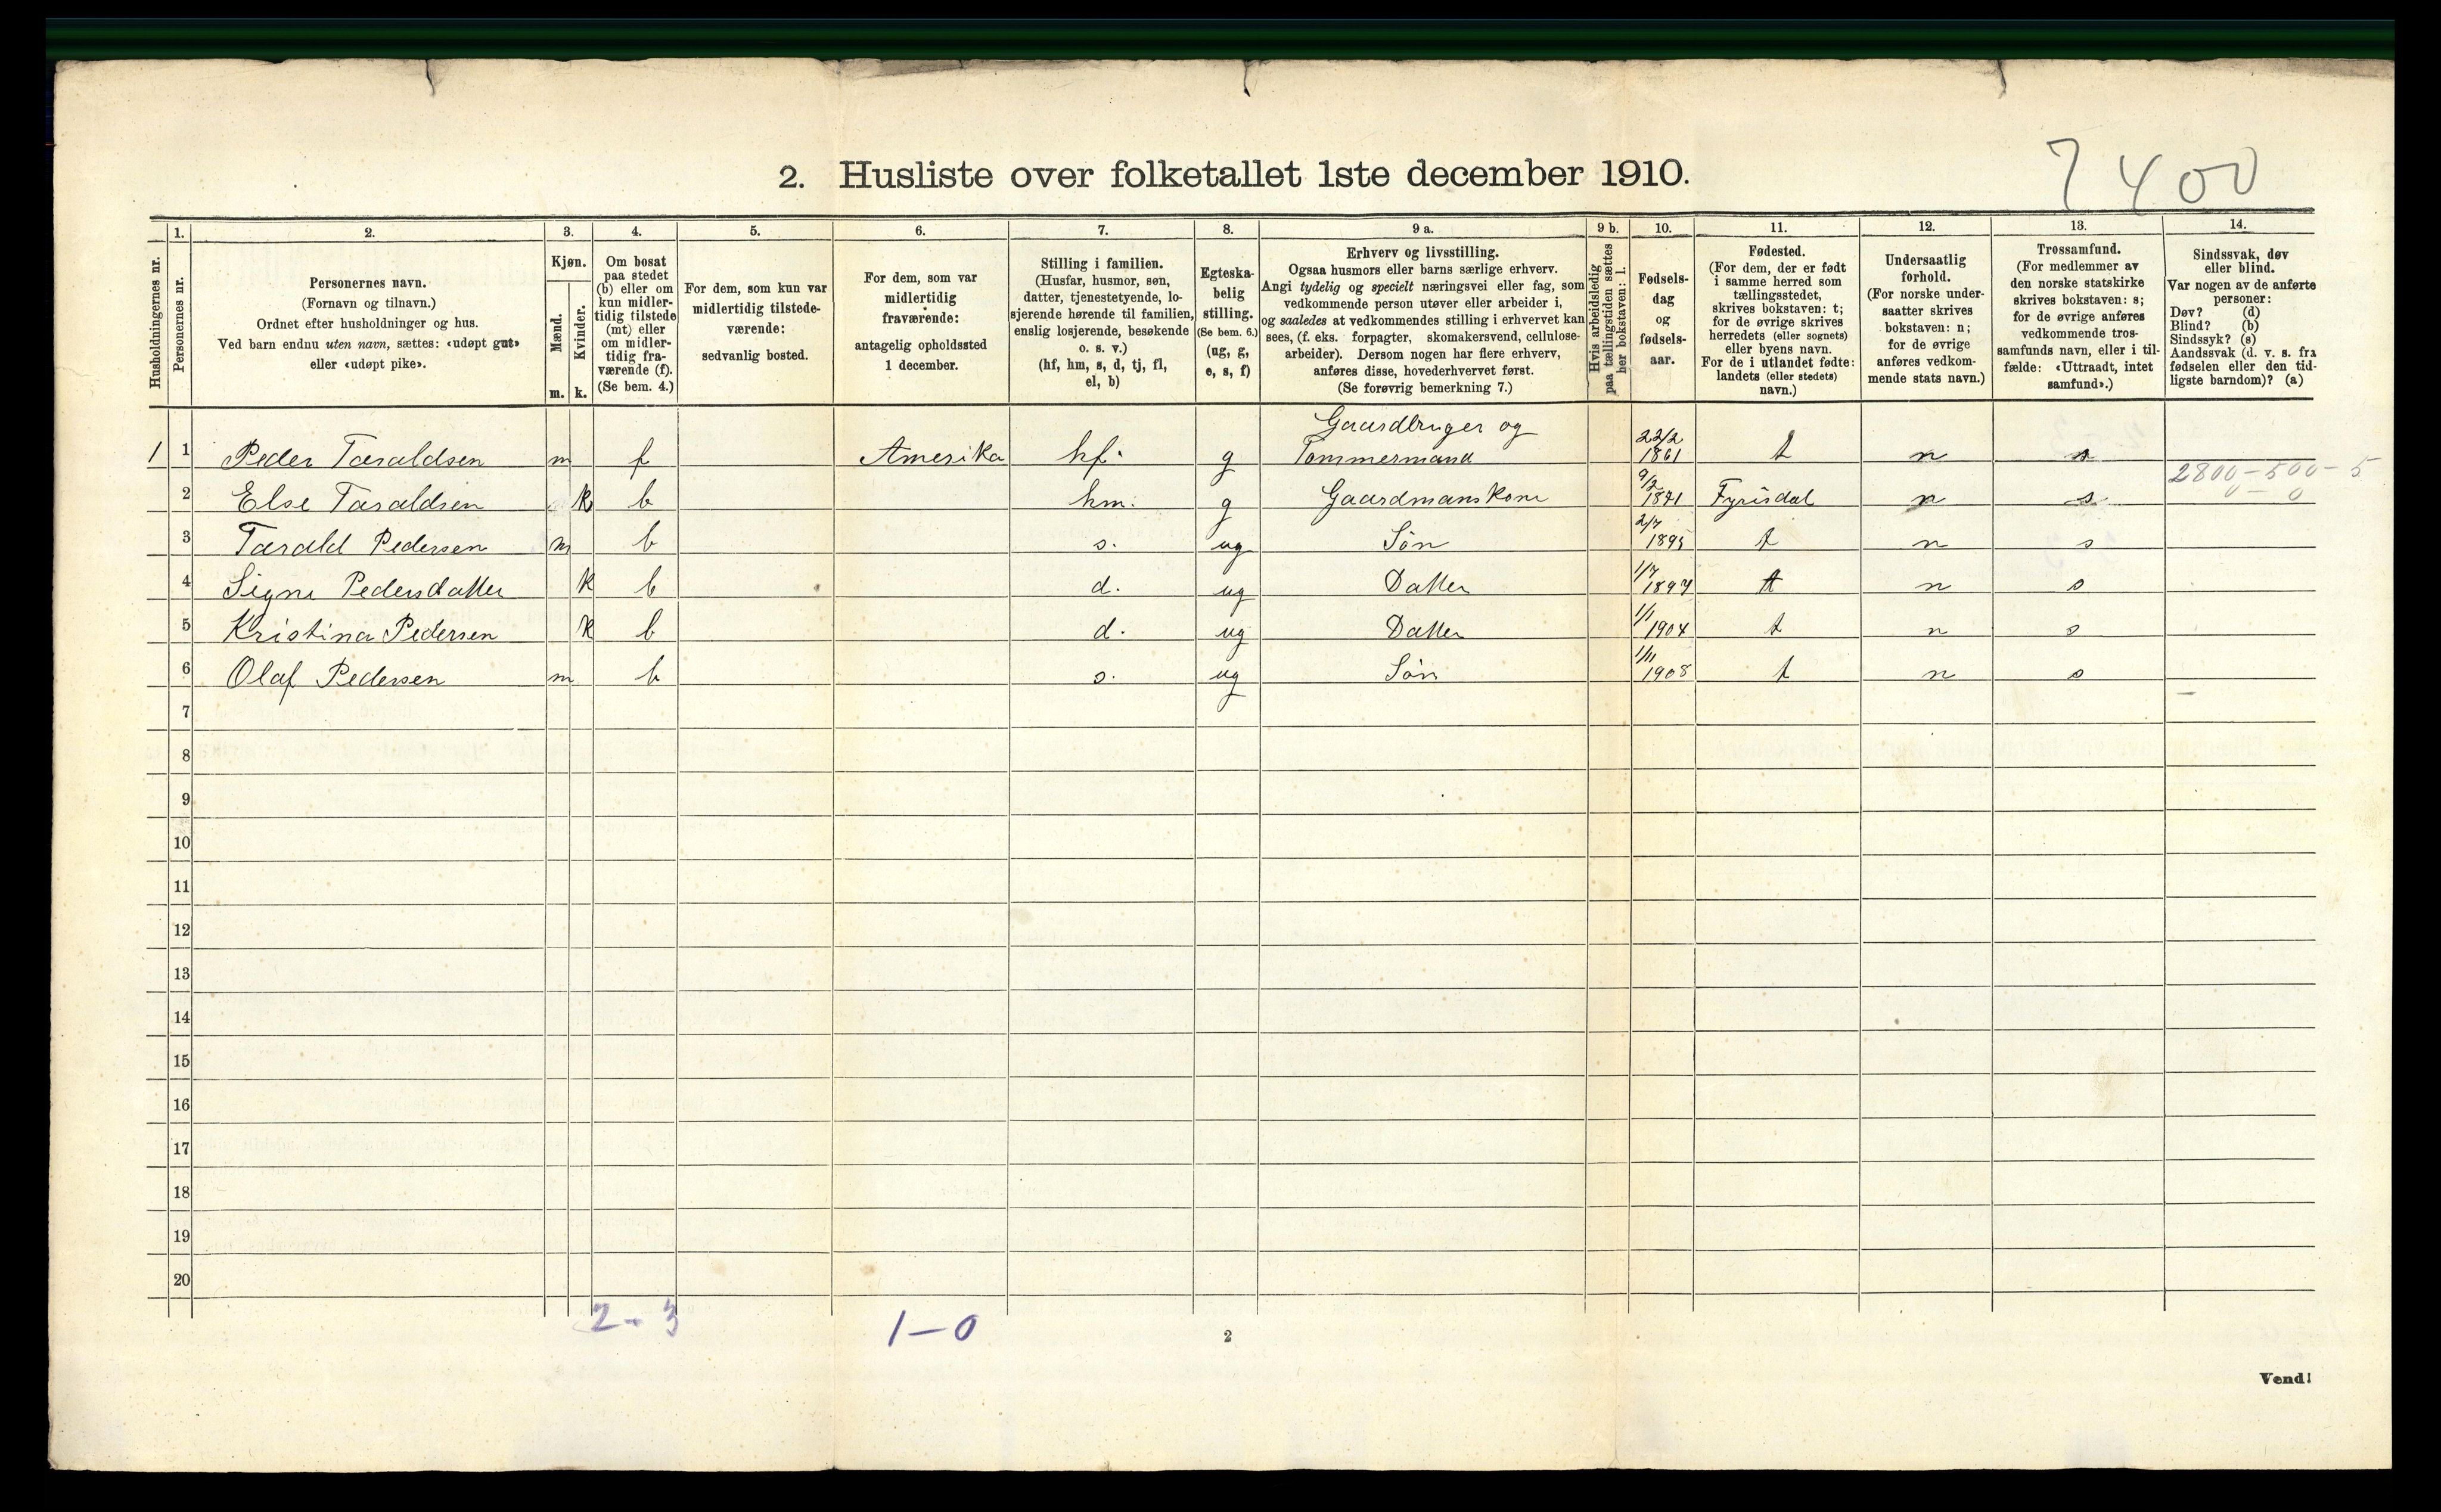 2. Husliste over folketallet 1ste december 1910.
7400
Husholdningernes nr.
1.
Personernes nr.
2.
Personernes navn.
(Fornavn og tilnavn.)
Ordnet efter husholdninger og hus.
Ved barn endnu uten navn, sættes: «udøpt gut»
eller «udøpt pike».
3.
Kjøn.
Mænd.
Kvinder.
m. k.
4.
Om bosat
paa stedet
(b) eller om
kun midler-
tidig tilstede
(mt) eller
om midler-
tidig fra-
værende (f).
(Se bem. 4.)
5.
For dem, som kun var
midlertidig tilstede-
værende:
sedvanlig bosted.
6.
For dem, som var
midlertidig
fraværende:
antagelig opholdssted
1 december.
7.
Stilling i familien.
(Husfar, husmor, søn,
datter, tjenestetyende, lo-
sjerende hørende til familien,
enslig losjerende, besøkende
o. s. v.)
(hf, hm, s, d, tj, fl,
el, b)
8.
Egteska-
belig
stilling.
(Se bem. 6.)
(ug, g,
e, s, f)
9 a.
Erhverv og livsstilling.
Ogsaa husmors eller barns særlige erhverv.
Angi tydelig og specielt næringsvei eller fag, som
vedkommende person utøver eller arbeider i,
og saaledes at vedkommendes stilling i erhvervet kan
sees, (f. eks. forpagter, skomakersvend, cellulose-
arbeider). Dersom nogen har flere erhverv,
anføres disse, hovederhvervet først.
(Se forøvrig bemerkning 7.)
9 b.
Hvis arbeidsledig
paa tællingstiden sættes
her bokstaven: l.
10.
Fødsels-
dag
og
fødsels-
aar.
11.
Fødested.
(For dem, der er født
i samme herred som
tællingsstedet,
skrives bokstaven: t;
for de øvrige skrives
herredets (eller sognets)
eller byens navn.
For de i utlandet fødte:
landets (eller stedets)
navn.)
12.
Undersaatlig
forhold.
(For norske under-
saatter skrives
bokstaven: n;
for de øvrige
anføres vedkom-
mende stats navn.)
13.
Trossamfund.
(For medlemmer av
den norske statskirke
skrives bokstaven: s;
for de øvrige anføres
vedkommende tros-
samfunds navn, eller i til-
fælde: «Uttraadt, intet
samfund».)
14.
Sindssvak, døv
eller blind.
Var nogen av de anførte
personer:
Døv? (d)
Blind? (b)
Sindssyk? (s)
Aandssvak (d. v. s. fra
fødselen eller den tid-
ligste barndom)? (a)
1 1 Peder Taraldsen m f Amerika hf. g Gaardbruger og Tømmermand 22/2 1861 t n s
2800-500-5
0-0
2 Else Taraldsen k b hm. g Gaardmanskone 9/2 1871 Fyrisdal n s
3 Tarald Pedersen m b s. ug Søn 2/7 1895 t n s
4 Signe Pedersdatter k b d. ug Datter 1/7 1897 t n s
5 Kristina Pedersen k b d. ug Datter 1/1 1904 t n s
6 Olaf Pedersen m b s. ug Søn 1/11 1908 t n s
7
8
9
10
11
12
13
14
15
16
17
18
19
20
2-3
1-0
2
Vend!